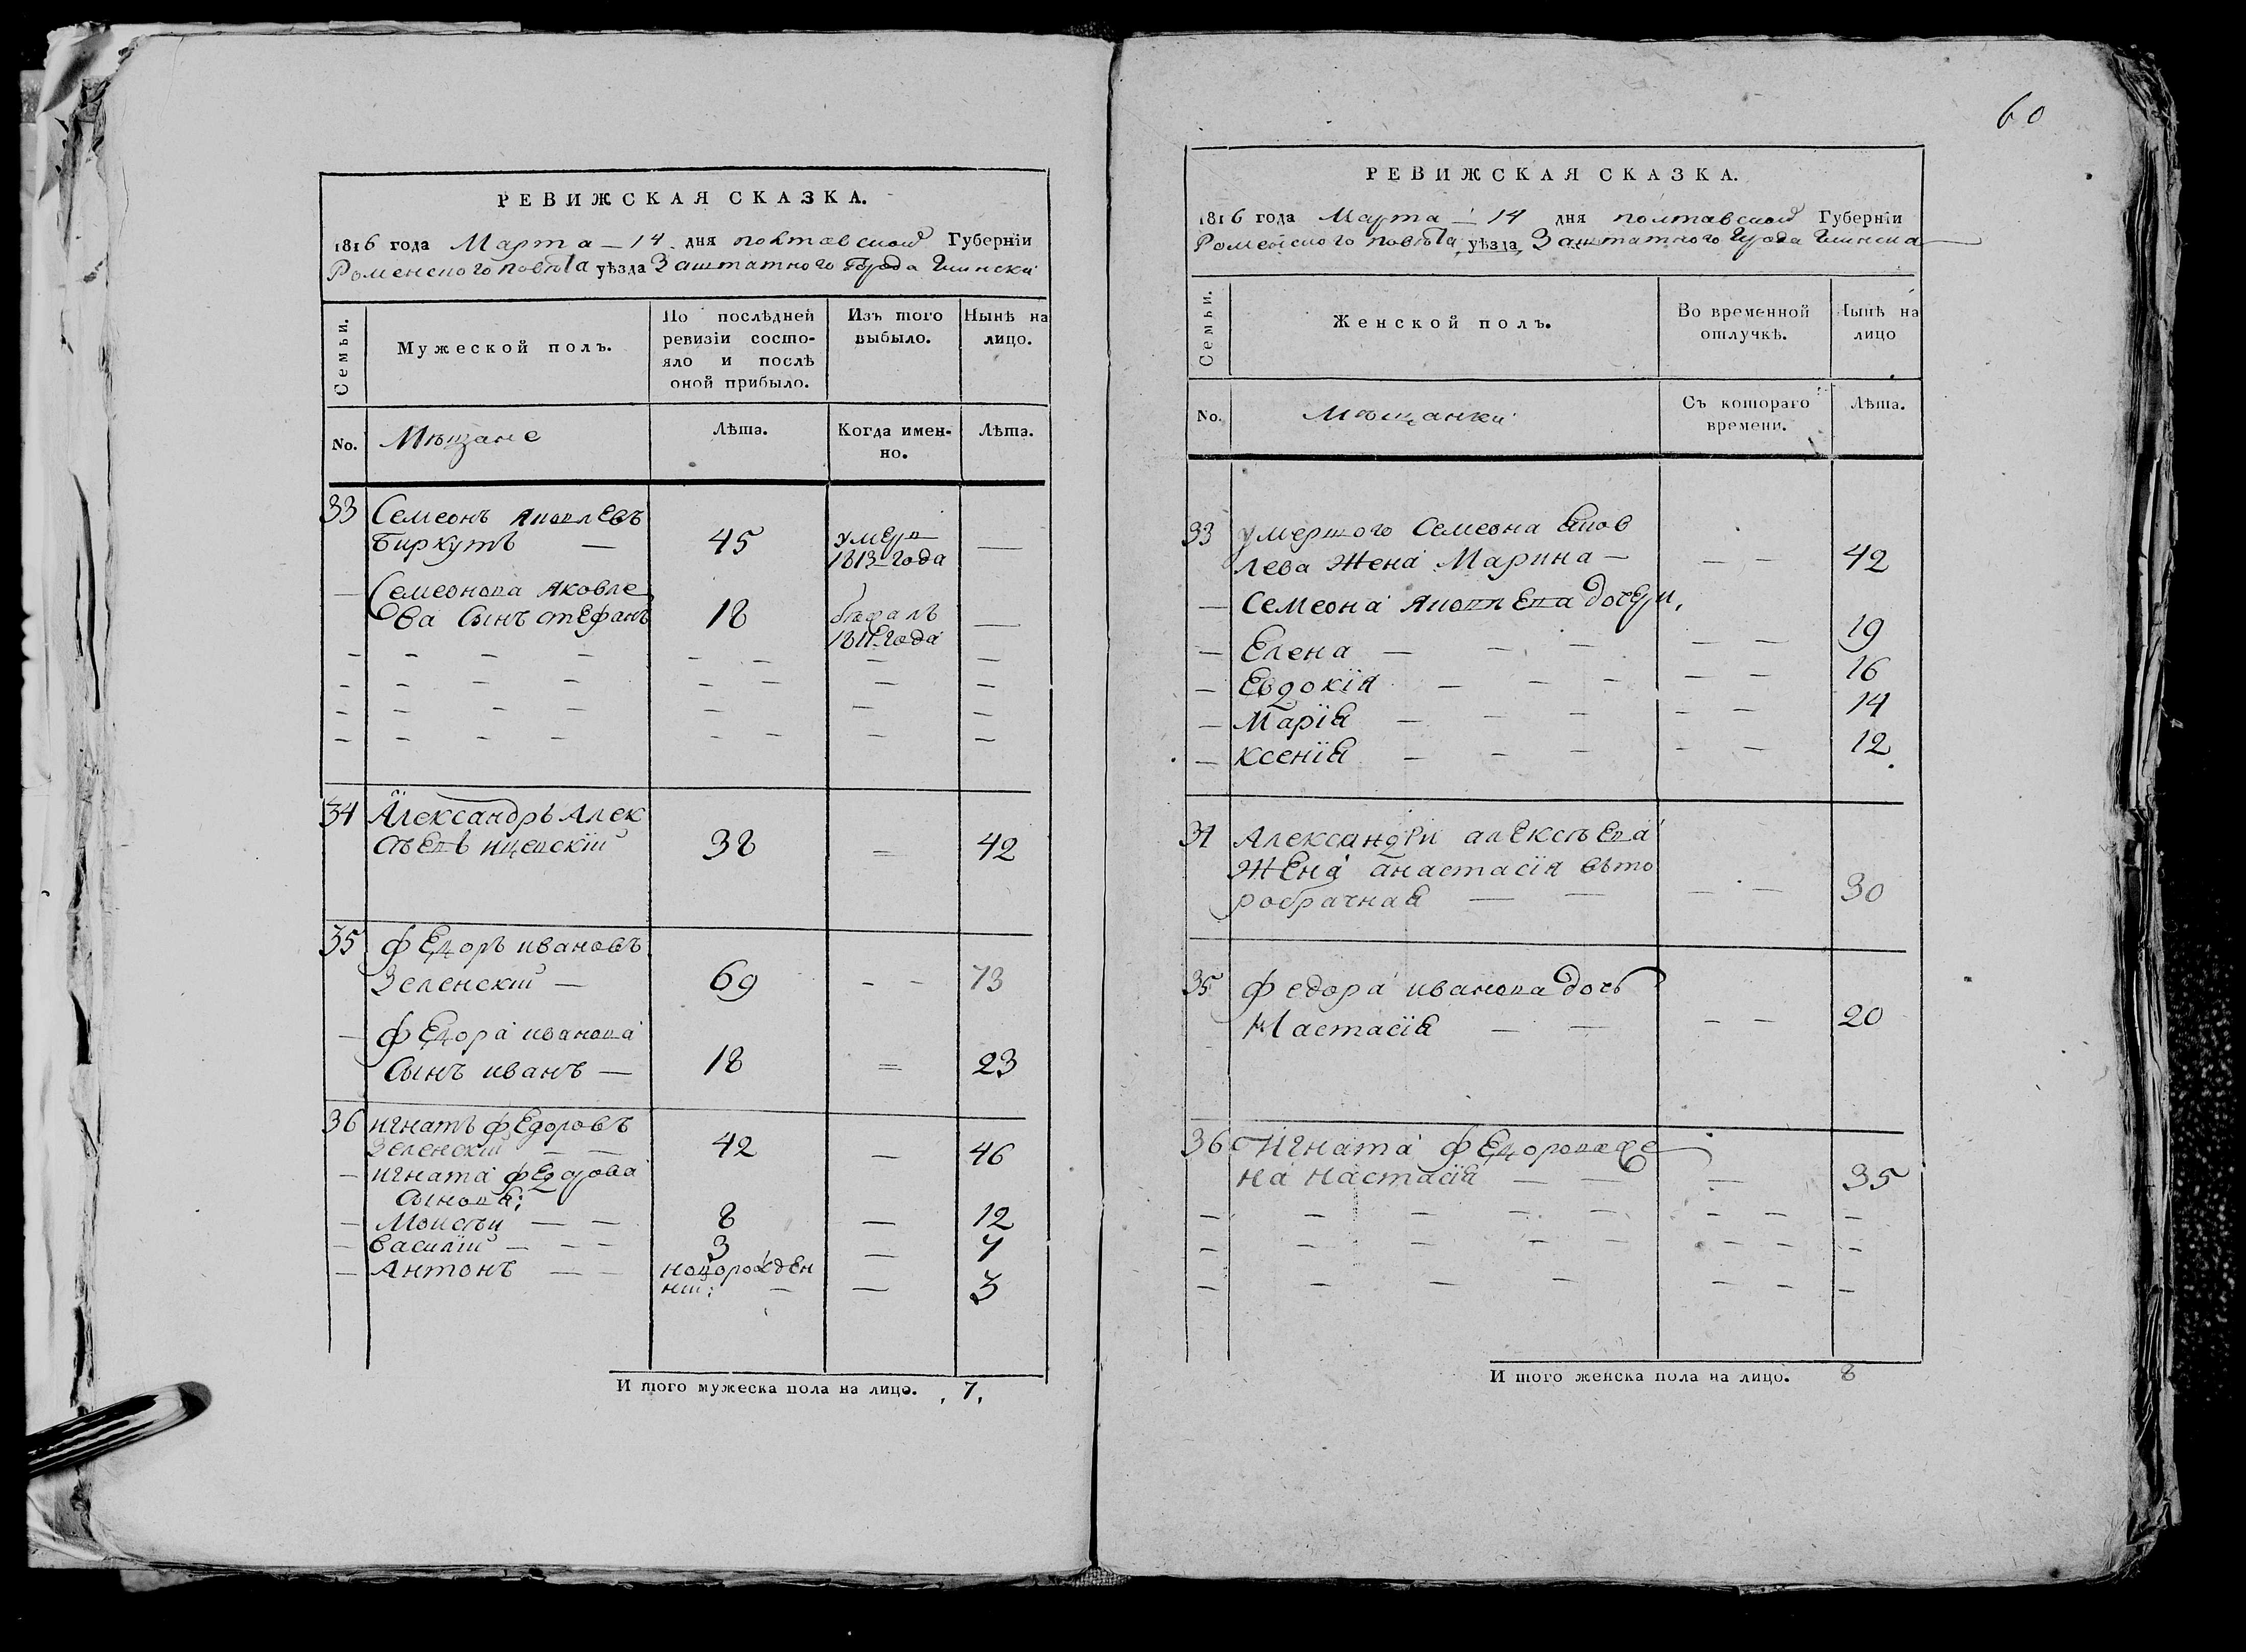 РЕВИЖСКАЯ СКАЗКА.
1816 года Марта — 14 дня полтавской Губернїи
Роменского повѣта уѣзда Заштатного города Глинска
Семьи.
Мужеской полъ.
По послѣдней
ревизїи состо-
яло и послѣ
оной прибыло.
Изъ того
выбыло.
Нынѣ на
лицо.
No.
Мѣщане
Лѣта.
Когда имен-
но.
Лѣта.
33 Семеонъ Яковлевъ
Биркутъ — 45 умеръ —
1813 года
— Семеонова Яковле
ва Сынъ стефанъ 18 —
1811 года
34 Александръ Алек
сѣевъ 38 = 42
35 федоръ ивановъ
Зеленский — 69 - - 73
— федора иванова
Сынъ иванъ — 18 = 23
36 игнатъ федоровъ
Зеленский — — 42 — 46
— игната федорова
Сынова:
— Моисѣй — — 8 — 12
— василїй — — — 3 — 7
— Антонъ — — новорожден
ний: — — 3
И того мужеска пола на лицо. 7.
60
РЕВИЖСКАЯ СКАЗКА.
1816 года Марта — 14 дня полтавской Губернїи
Роменского повѣта уѣзда Заштатного города Глинска
Семьи.
Женской полъ.
Во временной
отлучкѣ.
Нынѣ на
лицо
No.
Мѣщанки
Съ котораго
времени.
Лѣта.
33 умершого Семеона Яков
лева Жена Марина — — — 42
— Семеона Яковлева дочери,
— Елена — — — — — 19
— Евдокїя — — — — — 16
— Марїя — — — — — 14
— Ксенїя — — — — — 12
34 Александри алексѣева
Жена анастасїя вьто
робрачная — — — — 30
35 федора иванова дочь
Настасїя — — — — 20
36 Игната федорова же
на настасїя — — — 35
И того женска пола на лицо. 8